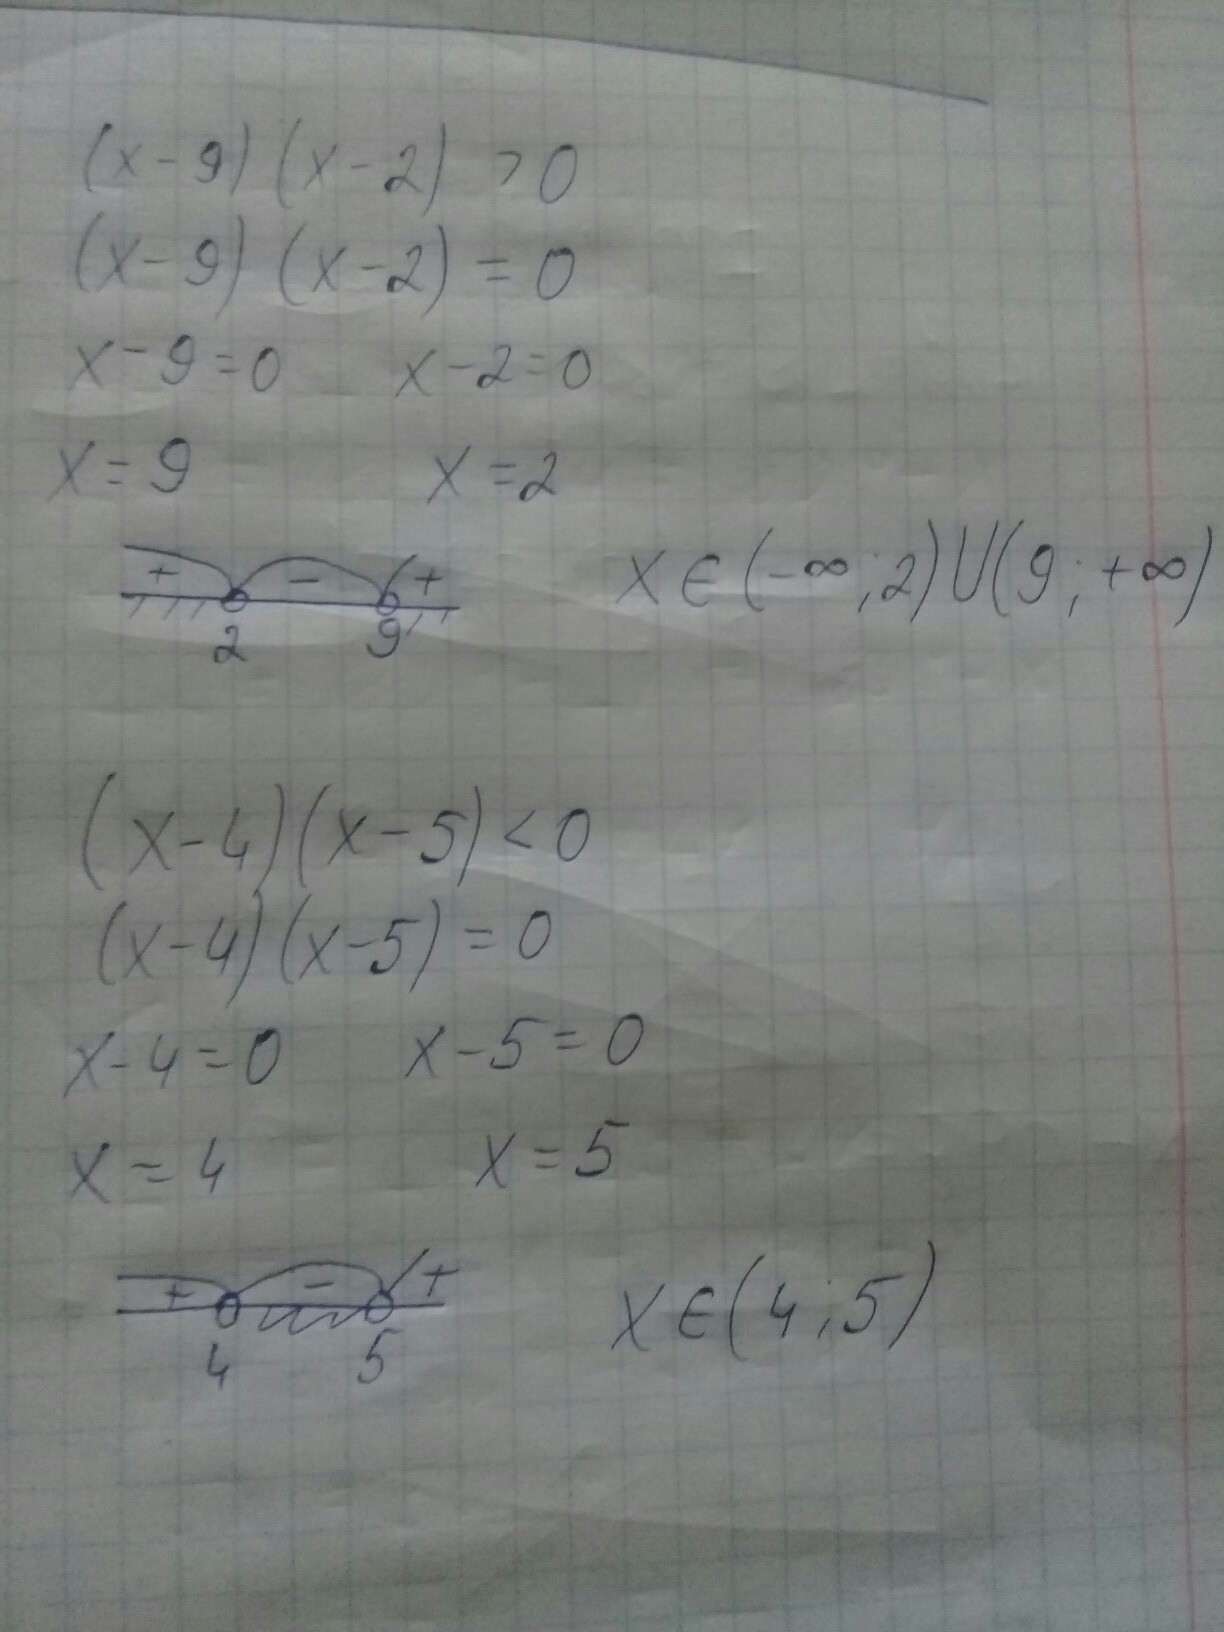 (x-9) (x-2) >0
(x-9) (x-2) = 0
x-9=0 x-2=0
x=9 x=2
+ - +
2 9
x∈(-∞;2)∪(9;+∞)
(x-4)(x-5)<0
(x-4)(x-5)=0
x-4=0 x-5=0
x=4 x=5
+ - +
4 5
x∈(4;5)